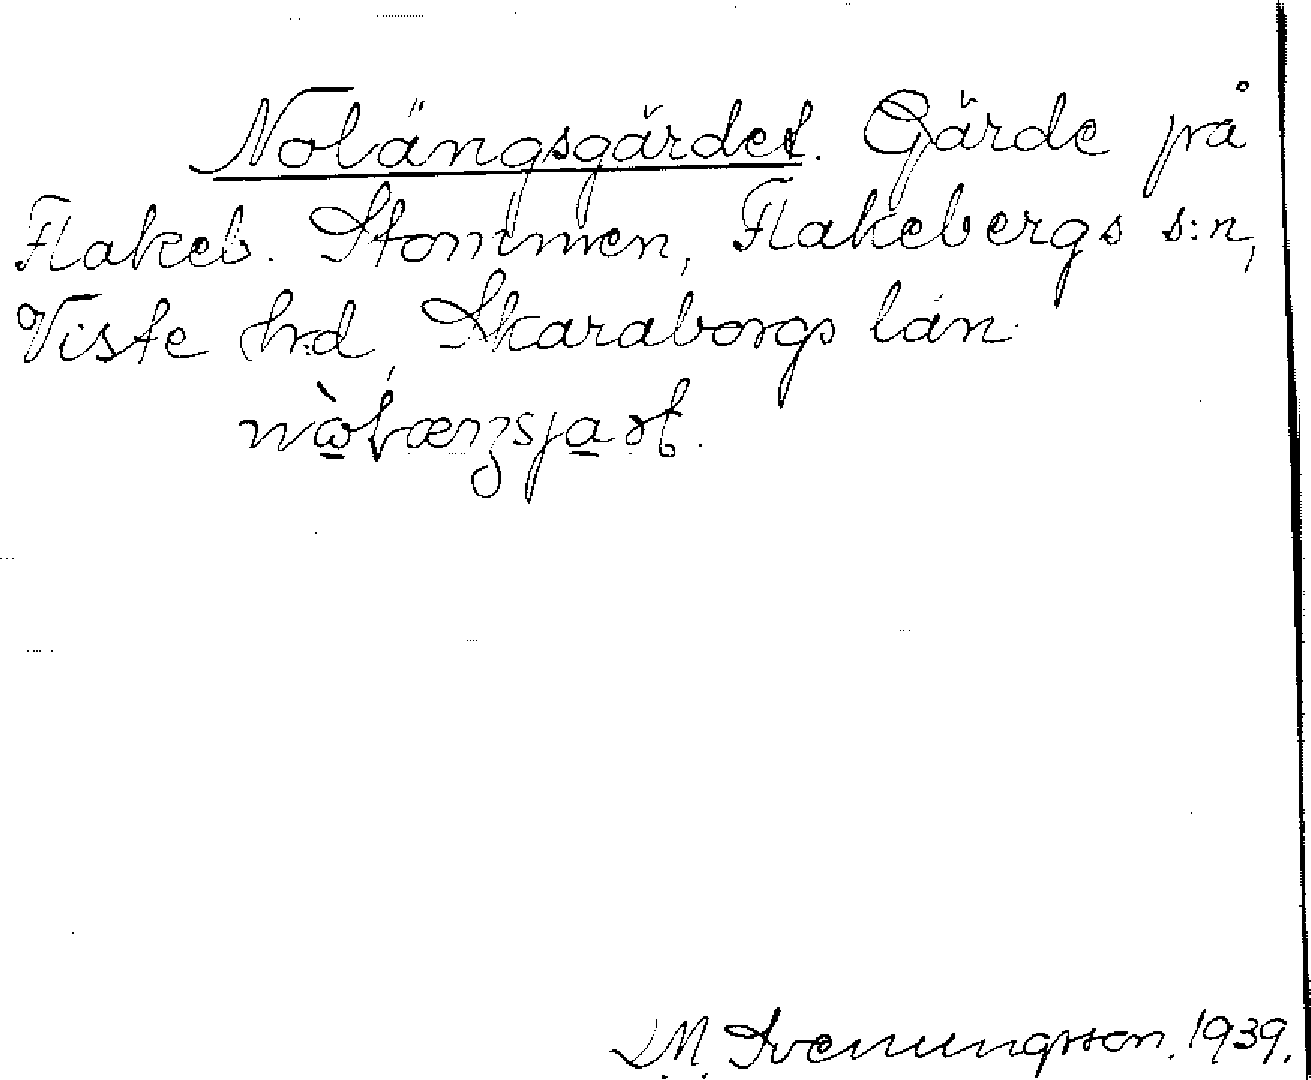 Nolängsgärdet. Gärde på
Flakeb. Stommen, Flakebergs s:n,
Viste hrd, Skaraborgs län.
D.M. Svenungsson. 1939.